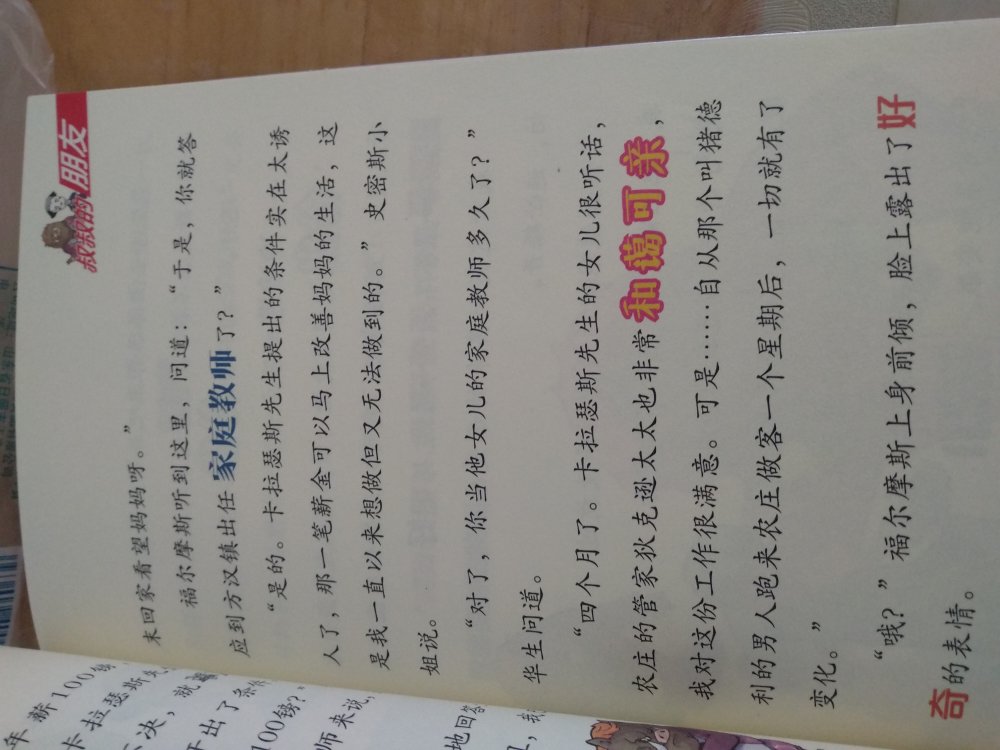 年薪100镑
卡拉瑟斯先
决,就
开出了条件
100镑?
师来说,
地回答
叔叔的朋友
末回家看望妈妈呀。”
福尔摩斯听到这里,问道:“于是,你就答
应到方汉镇出任家庭教师了?”
“是的。卡拉瑟斯先生提出的条件实在太诱
人了,那一笔薪金可以马上改善妈妈的生活,这
是我一直以来想做但又无法做到的。”史密斯小
姐说。
“对了,你当他女儿的家庭教师多久了?”
华生问道。
“四个月了。卡拉瑟斯先生的女儿很听话,
农庄的管家狄克逊太太也非常和蔼可亲,
我对这份工作很满意。可是……自从那个叫猪德
利的男人跑来农庄做客一个星期后,一切就有了
变化。”
“哦?”福尔摩斯上身前倾,脸上露出了好
奇的表情。